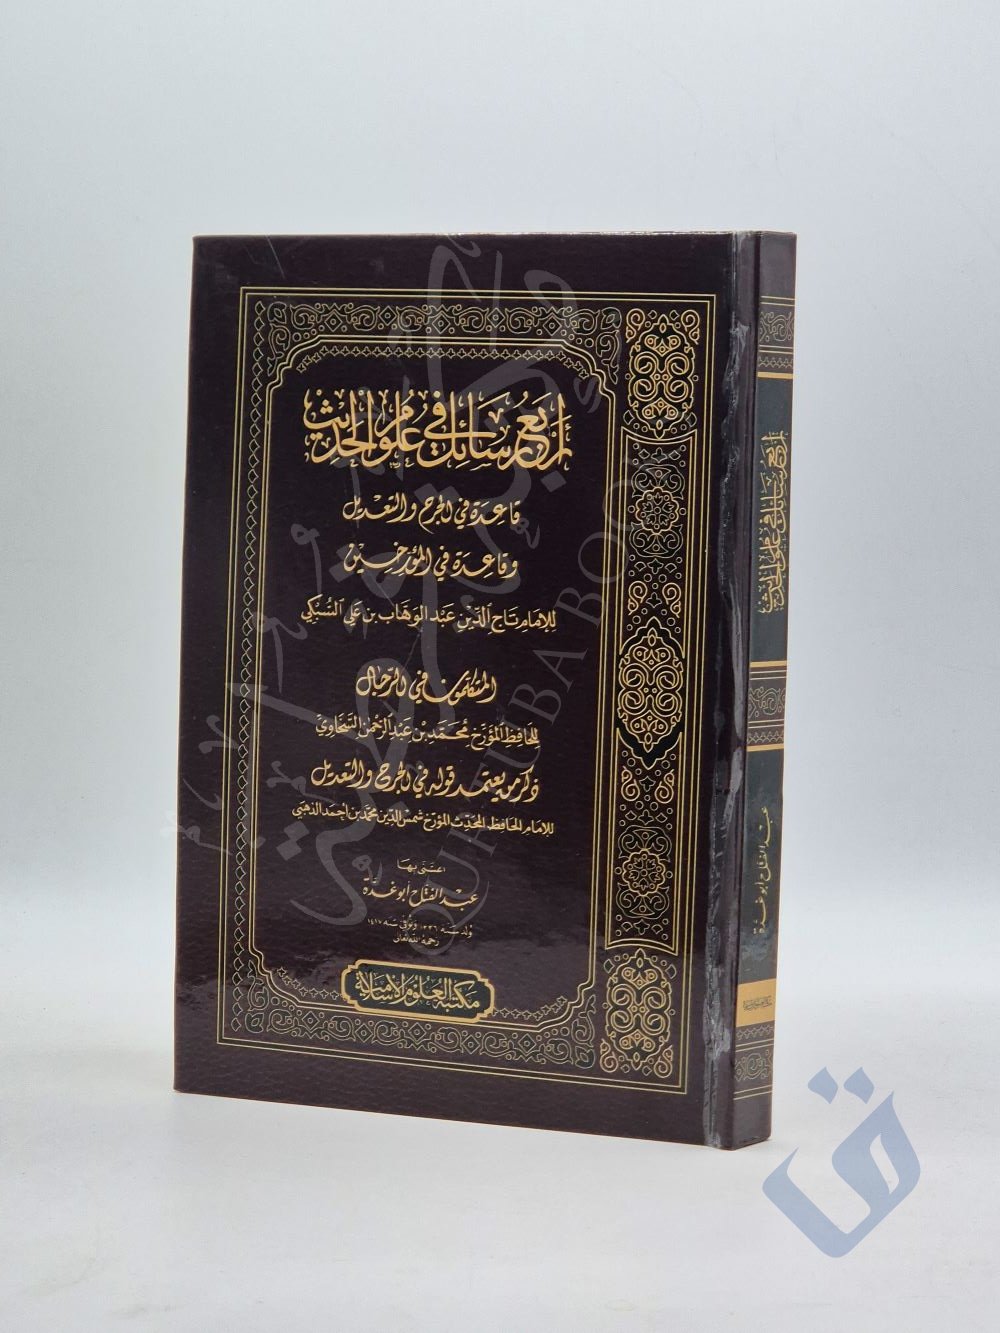 أربع رسائل في علوم الحديث
قاعدة في الجرح والتعديل
وقاعدة في المؤرخين
للإمام تاج الدين عبد الوهاب بن علي السبكي
المتكلمون في الرجال
للحافظ المؤرخ محمد بن عبد الرحمن السخاوي
ذكر من يعتمد قوله في الجرح والتعديل
للإمام الحافظ المحدث المؤرخ شمس الدين محمد بن أحمد الذهبي
اعتنى بها
عبد الفتاح أبو غدة
ولد سنة ١٣٣٦ وتوفي سنة ١٤١٧
رحمه الله تعالى
مكتبة العلوم الإسلامية
أربع رسائل في علوم الحديث
عبد الفتاح أبو غدة
QURTUBA BOOK